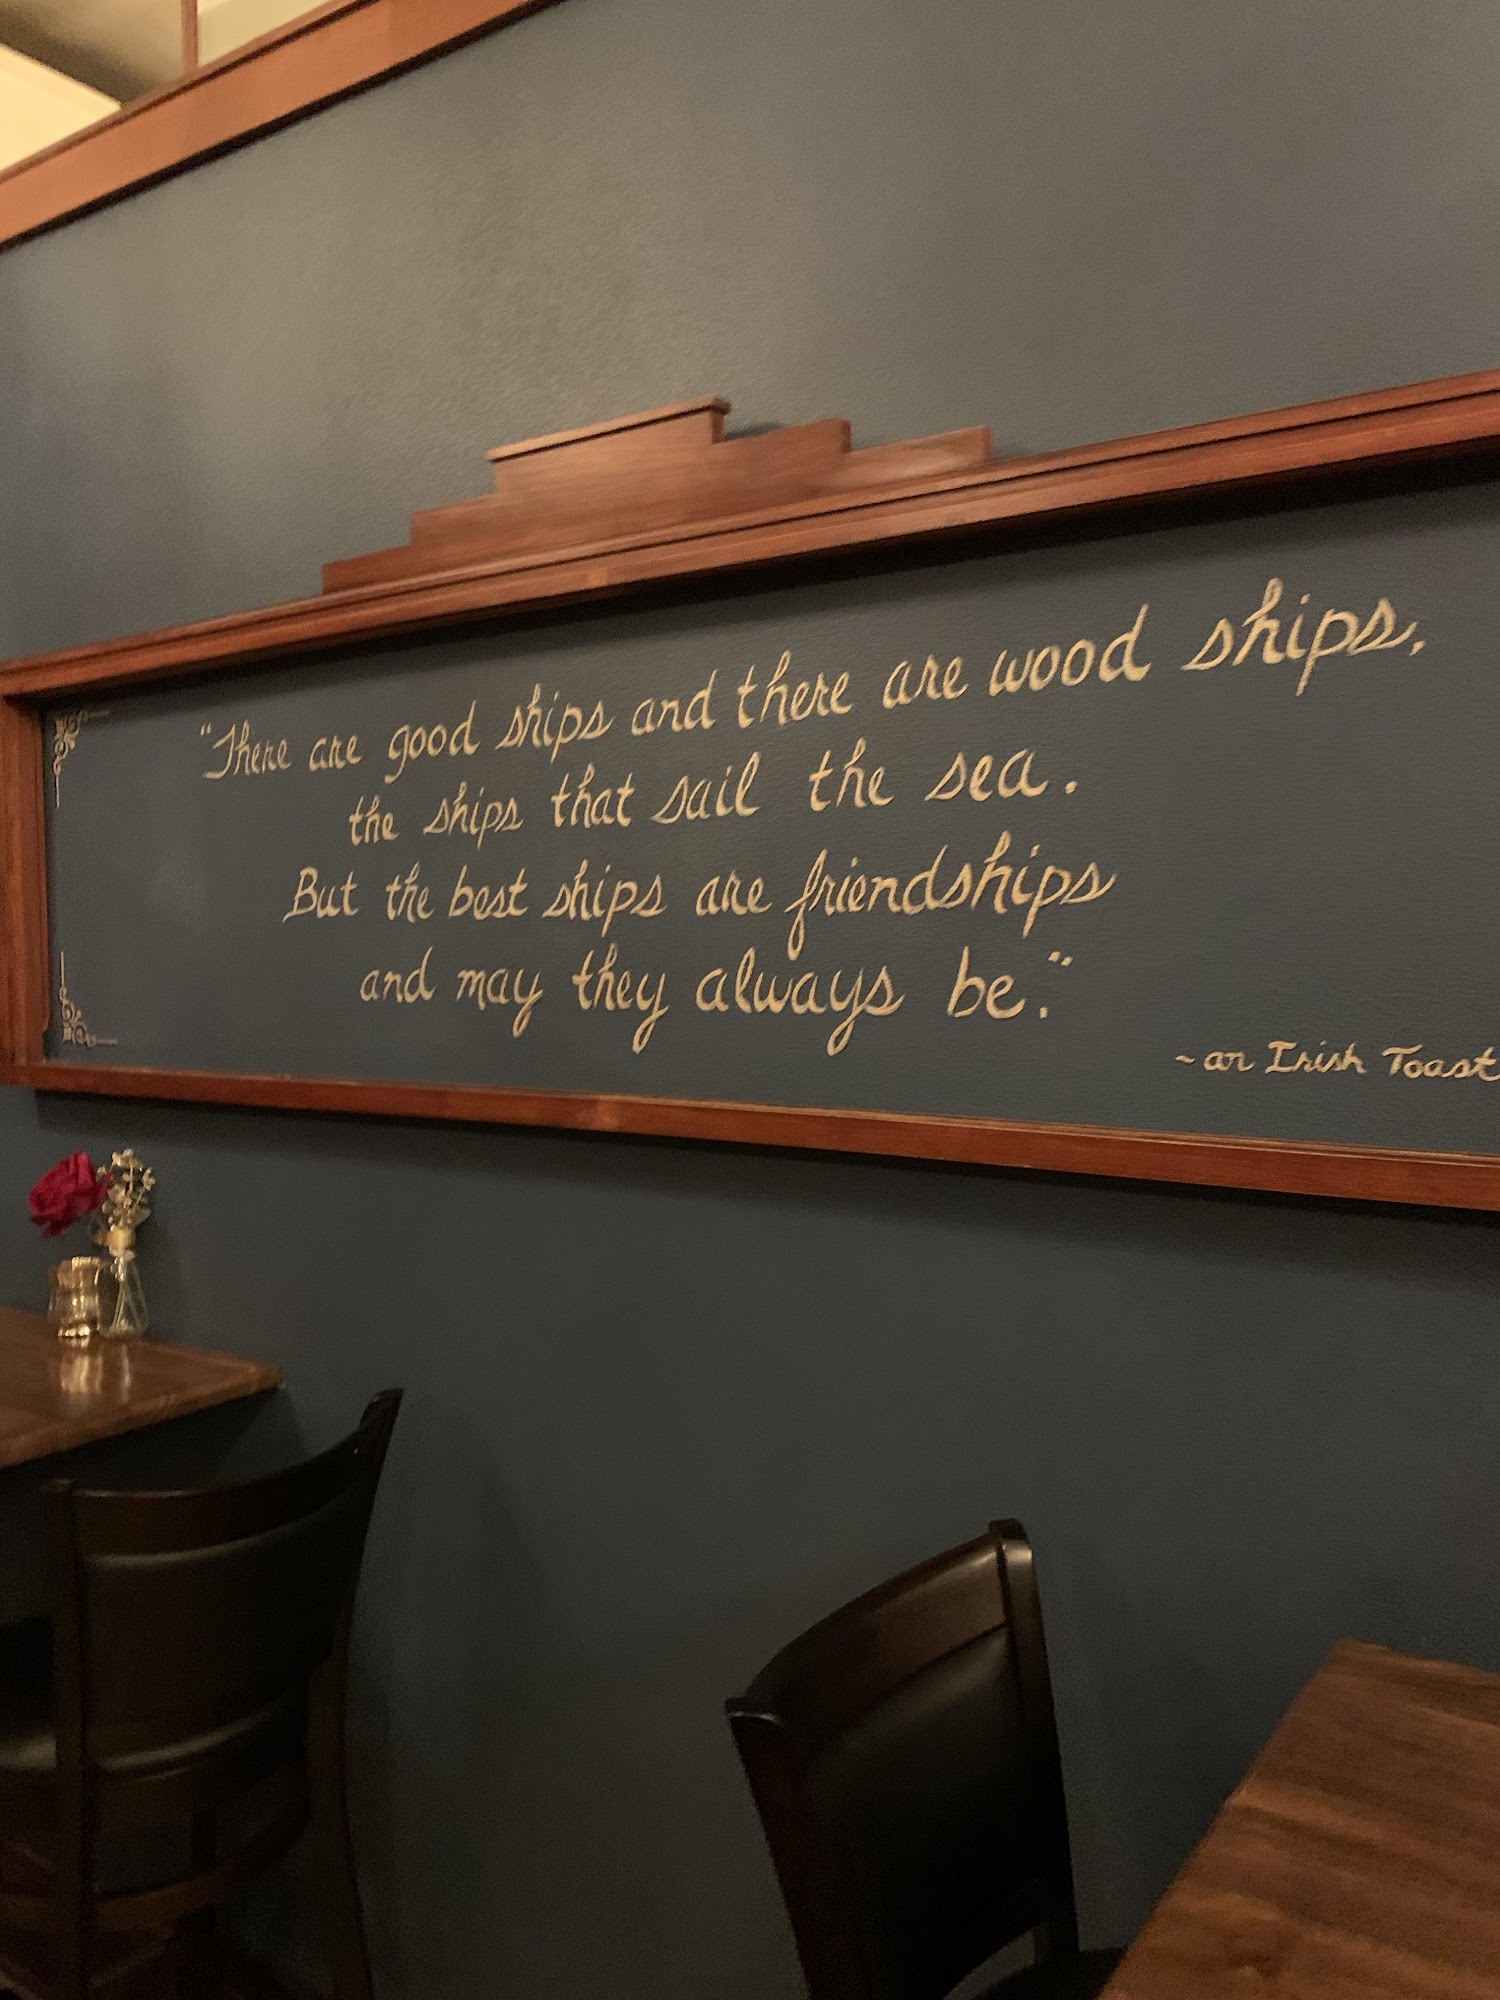 "There are good ships and there are wood ships,
the ships that sail the sea.
But the best ships are friendships
and may they always be."
~ an Irish Toast